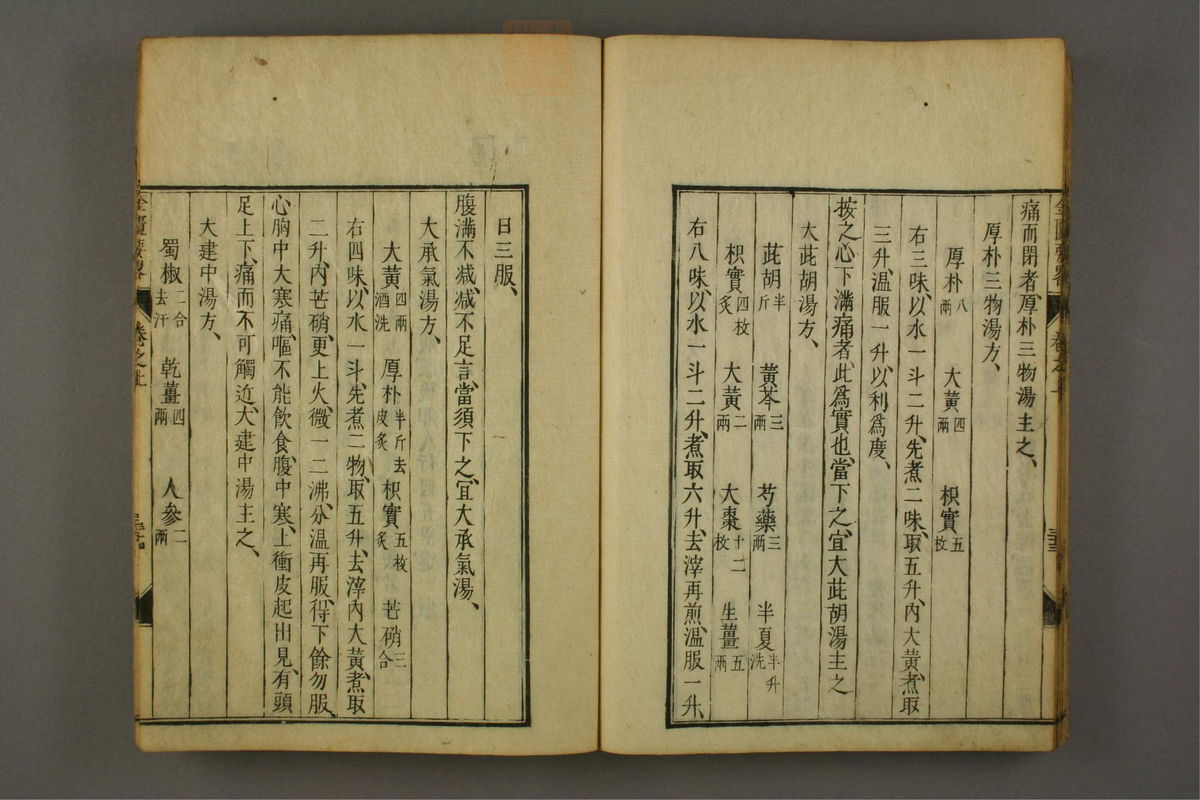 痛而閉者、厚朴三物湯主之、
厚朴三物湯方、
厚朴八兩 大黃四兩 枳實五枚
右三味、以水一斗二升、先煮二味、取五升、內大黃、煮取
三升、温服一升、以利爲度、
按之心下滿痛者、此爲實也、當下之、宜大茈胡湯主之
大茈胡湯方、
茈胡半斤 黃芩三兩 芍藥三兩 半夏半升洗
枳實四枚炙 大黃二兩 大棗十二枚 生薑五兩
右八味、以水一斗二升、煮取六升、去滓再煎、温服一升、
日三服、
腹滿不减、减不足言、當須下之、宜大承氣湯、
大承氣湯方、
大黃四兩酒洗 厚朴半斤去皮炙 枳實五枚炙 芒硝三合
右四味、以水一斗、先煮二物、取五升、去滓、內大黃、煮取
二升、內芒硝、更上火、微一二沸、分温再服、得下餘勿服、
心胸中大寒痛、嘔不能飲食、腹中寒、上衝皮起出見、有頭
足上下、痛而不可觸近、大建中湯主之、
大建中湯方、
蜀椒二合去汗 乾薑四兩 人參二兩